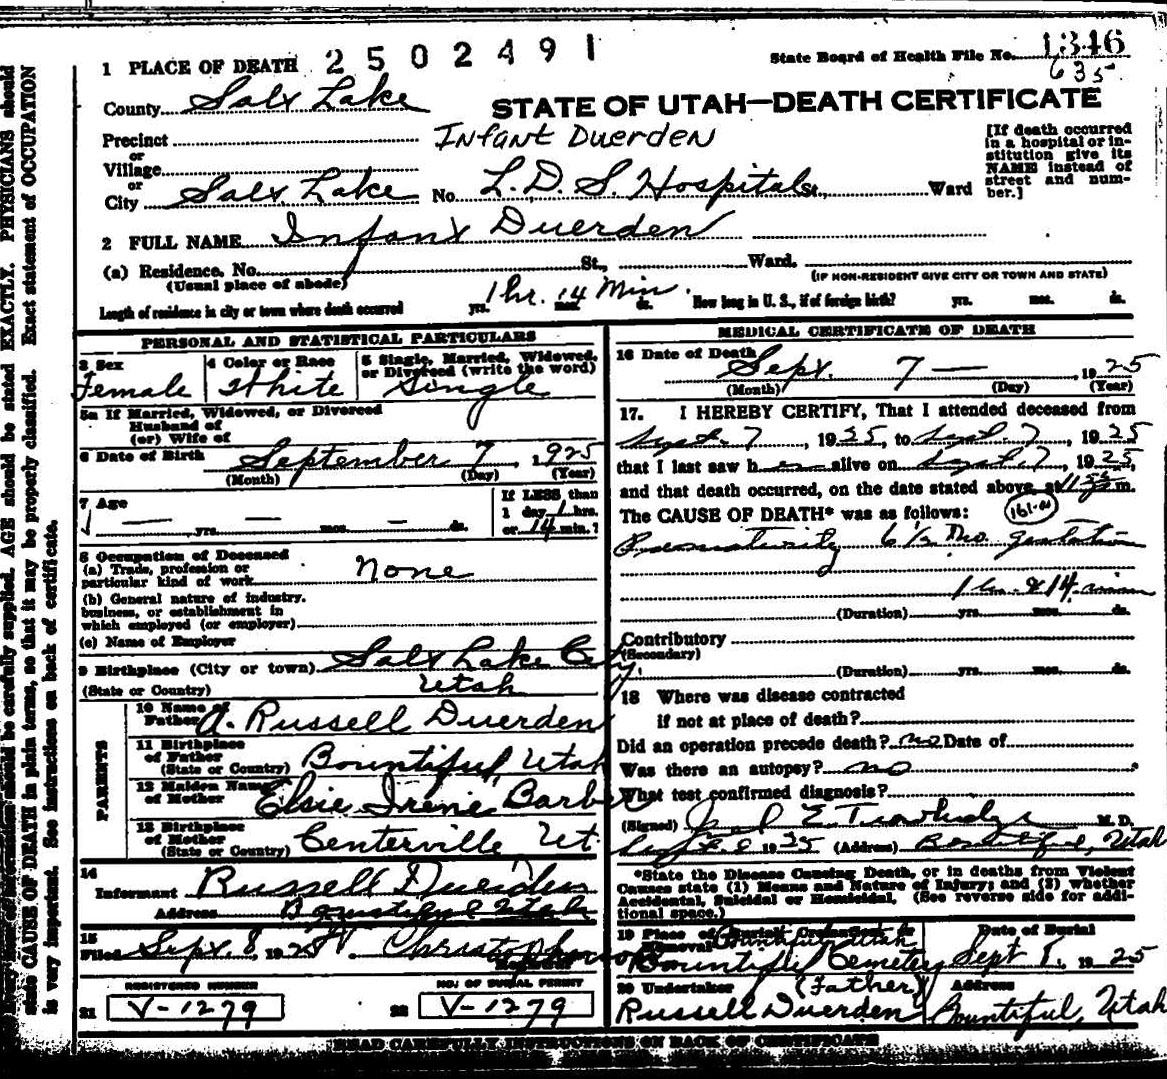 State Board of Health File No. 1346
635
1 PLACE OF DEATH 2502491
County Salt Lake
STATE OF UTAH—DEATH CERTIFICATE
Precinct
Infant Duerden
or
Village
or
City Salt Lake No. L.D.S. Hospital St., Ward
[If death occurred
in a hospital or in-
stitution give its
NAME instead of
street and num-
ber.]
2 FULL NAME Infant Duerden
(a) Residence. No. St., Ward.
(Usual place of abode)
(IF NON-RESIDENT GIVE CITY OR TOWN AND STATE)
Length of residence in city or town where death occurred yrs. mos. ds. 1 hr. 14 Min. How long in U. S., if of foreign birth? yrs. mos. ds.
PERSONAL AND STATISTICAL PARTICULARS
3 Sex
Female
4 Color or Race
White
5 Single, Married, Widowed,
or Divorced (write the word)
Single
5a If Married, Widowed, or Divorced
Husband of
(or) Wife of
6 Date of Birth September 7, 1925
(Month) (Day) (Year)
7 Age
— yrs. — mos. — ds.
If LESS than
1 day 1 hrs.
or 14 min.?
8 Occupation of Deceased
(a) Trade, profession or
particular kind of work None
(b) General nature of industry.
business, or establishment in
which employed (or employer)
(c) Name of Employer
9 Birthplace (City or town) Salt Lake City.
(State or Country) Utah
PARENTS
10 Name of
Father A. Russell Duerden
11 Birthplace
of Father
(State or Country) Bountiful, Utah
12 Maiden Name
of Mother Elsie Irene Barber
13 Birthplace
of Mother
(State or Country) Centerville, Ut.
14
Informant Russell Duerden
Address Bountiful Utah
15
Filed Sept. 8, 1925
Registrar
REGISTERED NUMBER
21 V-1279
NO. OF BURIAL PERMIT
22 V-1279
MEDICAL CERTIFICATE OF DEATH
16 Date of Death Sept. 7 — , 1925
(Month) (Day) (Year)
17. I HEREBY CERTIFY, That I attended deceased from
Sept. 7, 1925, to Sept. 7, 1925
that I last saw her alive on Sept 7, 1925,
and that death occurred, on the date stated above, at m.
The CAUSE OF DEATH* was as follows: 161-a
Prematurity 6 1/2 mo. gestation
1 hr. & 14 min
(Duration) yrs. mos. ds.
Contributory
(Secondary)
(Duration) yrs. mos. ds.
18 Where was disease contracted
if not at place of death?
Did an operation precede death? no Date of
Was there an autopsy? no
What test confirmed diagnosis?
(Signed) M. D.
Sept 8 1925 (Address) Bountiful, Utah
*State the Disease Causing Death, or in deaths from Violent
Causes state (1) Means and Nature of Injury; and (2) whether
Accidental, Suicidal or Homicidal. (See reverse side for addi-
tional space.)
19 Place of Burial, Cremation or
Removal Bountiful Utah
Bountiful Cemetery
Date of Burial
Sept 8, 1925
20 Undertaker (Father)
Russell Duerden
Address
Bountiful, Utah
READ CAREFULLY INSTRUCTIONS ON BACK OF CERTIFICATE
should be carefully supplied. AGE should be stated EXACTLY. PHYSICIANS should
state CAUSE OF DEATH in plain terms, so that it may be properly classified. Exact statement of OCCUPATION
is very important. See instructions on back of certificate.